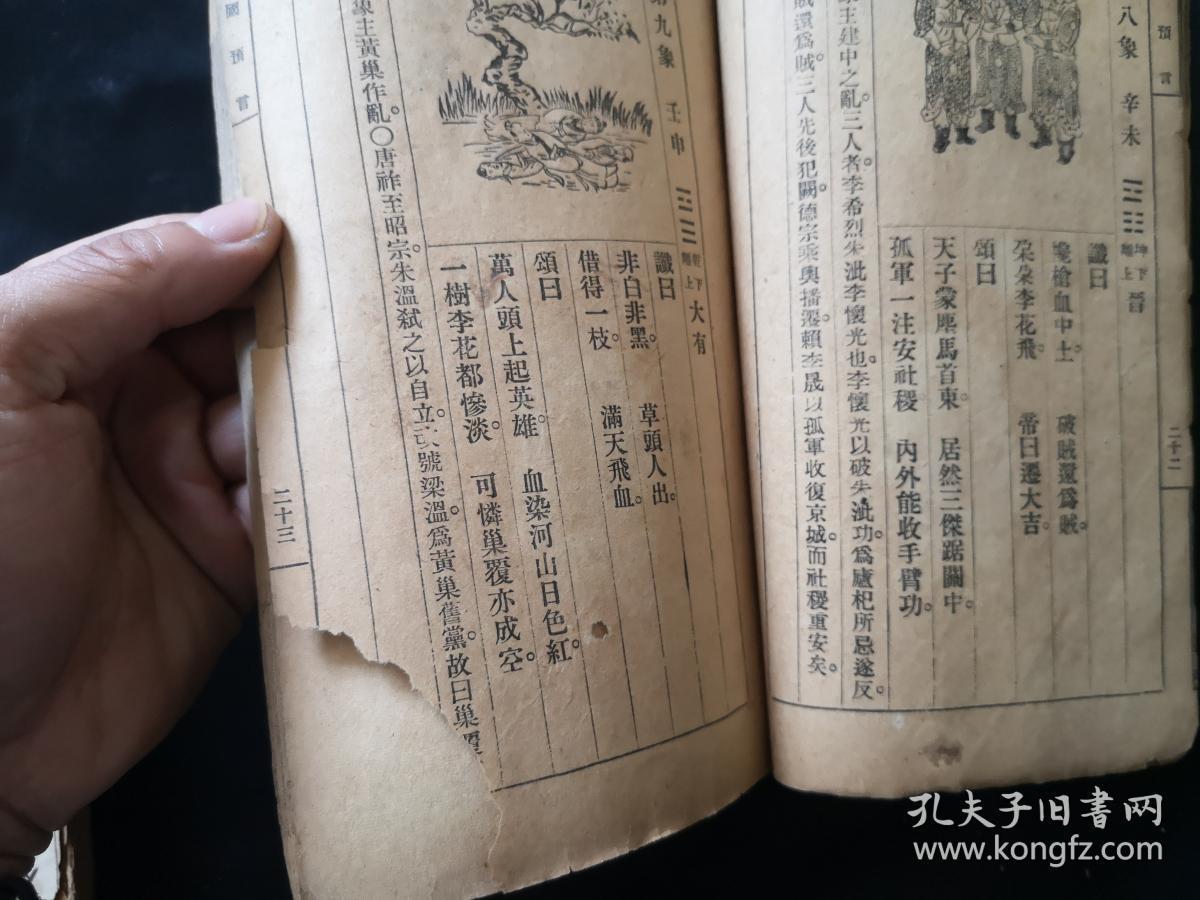 預言
二十二
八象 辛未 ䷢ 坤下離上 晉
讖曰
攙槍血中土。 破賊還爲賊。
朶朶李花飛。 帝曰遷大吉。
頌曰
天子蒙塵馬首東。 居然三傑踞關中。
孤軍一注安社稷。 內外能收手臂功。
象主建中之亂。三人者。李希烈朱泚李懷光也。李懷光以破朱泚功。爲盧杞所忌遂反。
賊還爲賊。三人先後犯闕。德宗乘輿播遷。賴李晟以孤軍收復京城。而社稷重安矣。
第九象 壬申 乾下離上 大有
讖曰
非白非黑。 草頭人出。
借得一枝。 滿天飛血。
頌曰
萬人頭上起英雄。 血染河山日色紅。
一樹李花都慘淡。 可憐巢覆亦成空。
象主黃巢作亂。〇唐祚至昭宗。朱溫弑之以自立。改號梁。溫爲黃巢舊黨。故曰巢覆
圖預言
二十三
孔夫子旧書网
www.kongfz.com